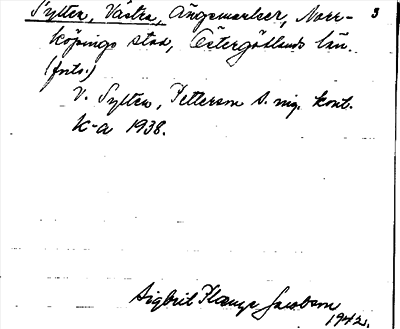 Sylten, Västra, Ängsmarker, Norr- 3
köpings stad, Östergötlands län.
(forts.)
V. Sylten, Petterson s. mg. kont.
K-a 1938.
Sigbrit Plænge Jacobson
1942.